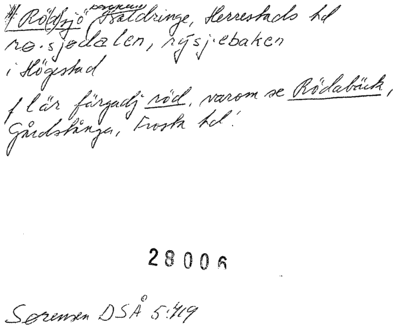 Röd(e)sjö Baldringe, Herrestads hd
rø·sjødalen, rýsjebaken
i Högestad
f l är färgadj röd, varom se Rödabäck,
Gårdstånga, Frosta hd!
28006
Sørensen DSÅ 5:419